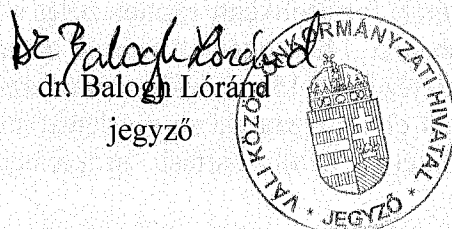 Dr Balogh Lóránd
dr. Balogh Lóránd
jegyző
VÁLI KÖZÖS ÖNKORMÁNYZATI HIVATAL
* JEGYZŐ *